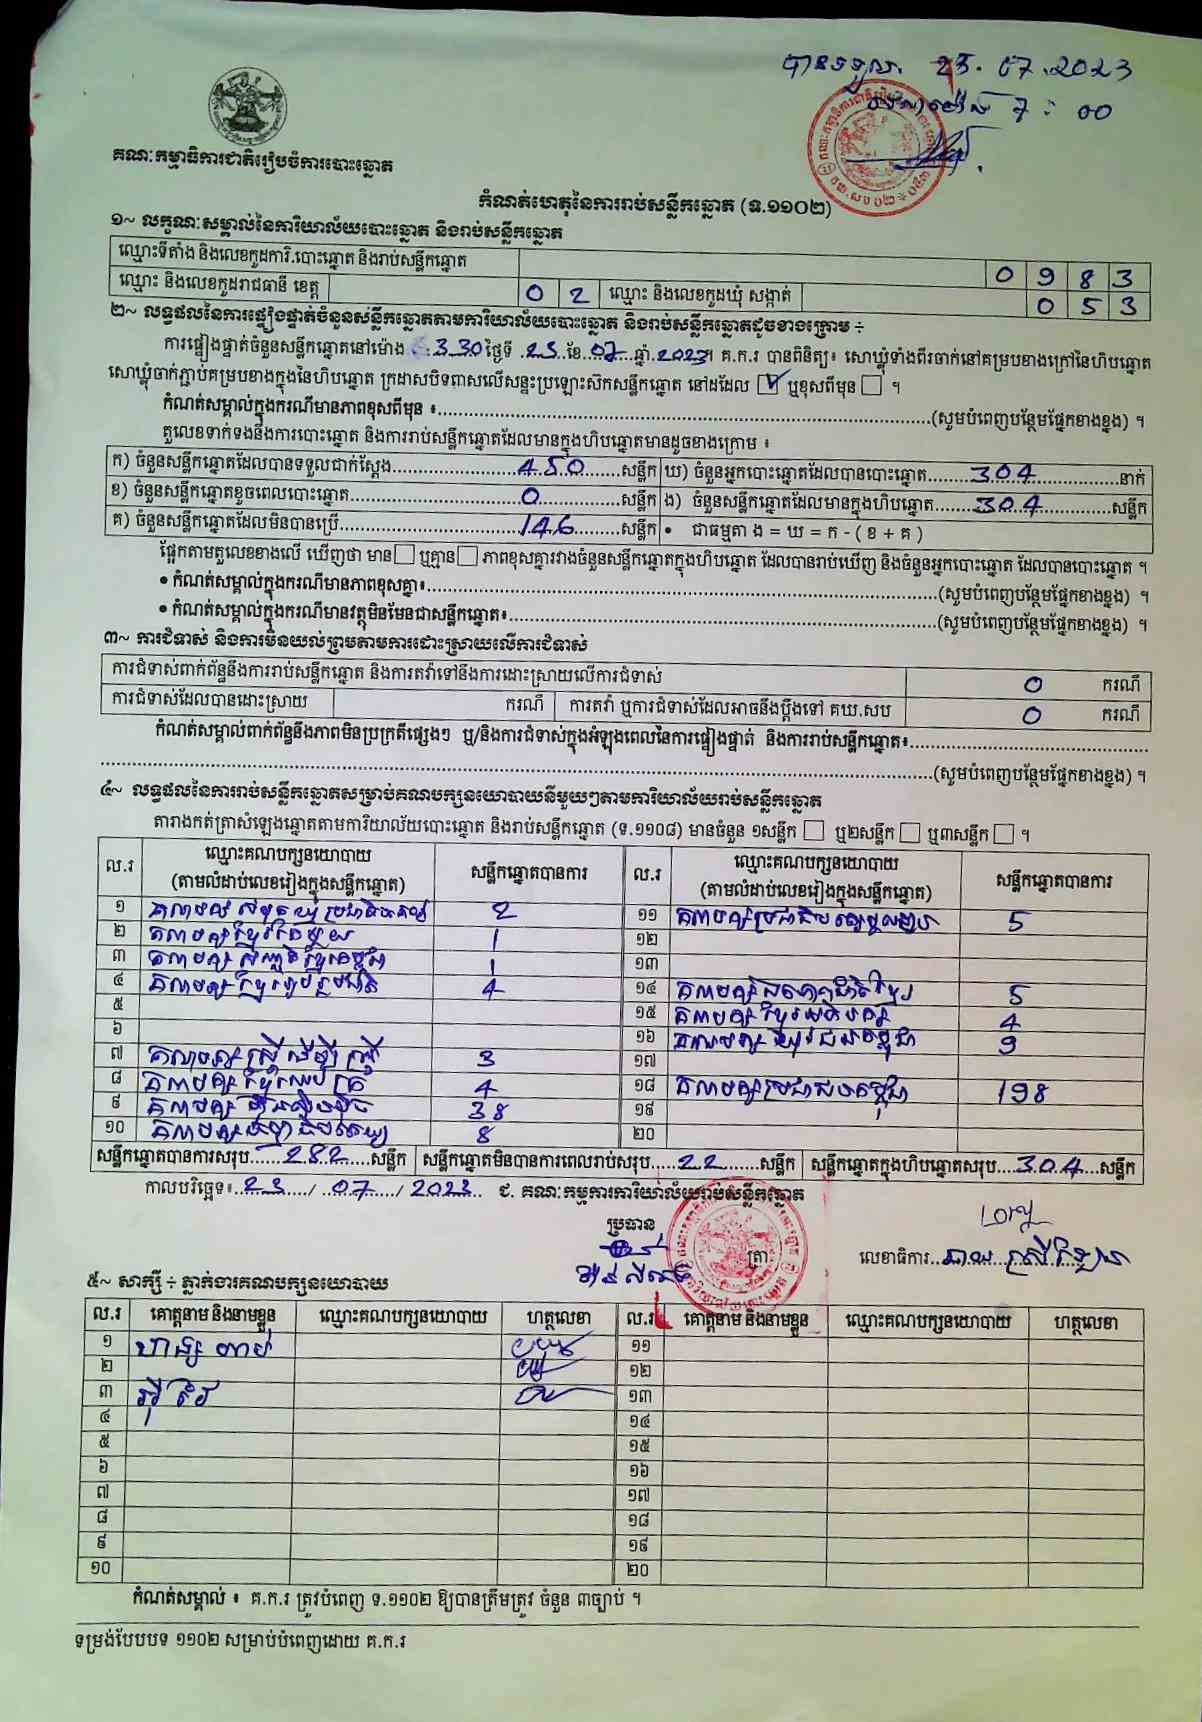 បានទទួល. 23.07.2023
វេលាម៉ោង 7:00
គណៈកម្មាធិការជាតិរៀបចំការបោះឆ្នោត
កំណត់ហេតុនៃការរាប់សន្លឹកឆ្នោត (ទ.១១០២)
១~ លក្ខណៈសម្គាល់នៃការិយាល័យបោះឆ្នោត និងរាប់សន្លឹកឆ្នោត
ឈ្មោះទីតាំង និងលេខកូដការិ.បោះឆ្នោត និងរាប់សន្លឹកឆ្នោត 0 9 8 3
ឈ្មោះ និងលេខកូដរាជធានី ខេត្ត 0 2 ឈ្មោះ និងលេខកូដឃុំ សង្កាត់ 0 5 3
២~ លទ្ធផលនៃការផ្ទៀងផ្ទាត់ចំនួនសន្លឹកឆ្នោតតាមការិយាល័យបោះឆ្នោត និងរាប់សន្លឹកឆ្នោតដូចខាងក្រោម ÷
ការផ្ទៀងផ្ទាត់ចំនួនសន្លឹកឆ្នោតនៅម៉ោង 3.30 ថ្ងៃទី 23 ខែ 07 ឆ្នាំ 2023។ គ.ក.រ បានពិនិត្យ៖ សោឃ្លុំទាំងពីរចាក់នៅគម្របខាងក្រៅនៃហិបឆ្នោត
សោឃ្លុំចាក់ភ្ជាប់គម្របខាងក្នុងនៃហិបឆ្នោត ក្រដាសបិទពាសលើសន្ទះប្រឡោះស៊កសន្លឹកឆ្នោត នៅដដែល ☑ ឬខុសពីមុន ☐ ។
កំណត់សម្គាល់ក្នុងករណីមានភាពខុសពីមុន ៖ (សូមបំពេញបន្ថែមផ្នែកខាងខ្នង) ។
តួលេខទាក់ទងនឹងការបោះឆ្នោត និងការរាប់សន្លឹកឆ្នោតដែលមានក្នុងហិបឆ្នោតមានដូចខាងក្រោម ៖
ក) ចំនួនសន្លឹកឆ្នោតដែលបានទទួលជាក់ស្តែង 450 សន្លឹក ឃ) ចំនួនអ្នកបោះឆ្នោតដែលបានបោះឆ្នោត 304 នាក់
ខ) ចំនួនសន្លឹកឆ្នោតខូចពេលបោះឆ្នោត 0 សន្លឹក ង) ចំនួនសន្លឹកឆ្នោតដែលមានក្នុងហិបឆ្នោត 304 សន្លឹក
គ) ចំនួនសន្លឹកឆ្នោតដែលមិនបានប្រើ 146 សន្លឹក • ជាធម្មតា ង = ឃ = ក - ( ខ + គ )
ផ្អែកតាមតួលេខខាងលើ ឃើញថា មាន ☐ ឬគ្មាន ☐ ភាពខុសគ្នារវាងចំនួនសន្លឹកឆ្នោតក្នុងហិបឆ្នោត ដែលបានរាប់ឃើញ និងចំនួនអ្នកបោះឆ្នោត ដែលបានបោះឆ្នោត ។
• កំណត់សម្គាល់ក្នុងករណីមានភាពខុសគ្នា៖ (សូមបំពេញបន្ថែមផ្នែកខាងខ្នង) ។
• កំណត់សម្គាល់ក្នុងករណីមានវត្ថុមិនមែនជាសន្លឹកឆ្នោត៖ (សូមបំពេញបន្ថែមផ្នែកខាងខ្នង) ។
៣~ ការជំទាស់ និងការមិនយល់ព្រមតាមការដោះស្រាយលើការជំទាស់
ការជំទាស់ពាក់ព័ន្ធនឹងការរាប់សន្លឹកឆ្នោត និងការតវ៉ាទៅនឹងការដោះស្រាយលើការជំទាស់ 0 ករណី
ការជំទាស់ដែលបានដោះស្រាយ ករណី ការតវ៉ា ឬការជំទាស់ដែលអាចនឹងប្តឹងទៅ គឃ.សប 0 ករណី
កំណត់សម្គាល់ពាក់ព័ន្ធនឹងភាពមិនប្រក្រតីផ្សេងៗ ឬ/និងការជំទាស់ក្នុងអំឡុងពេលនៃការផ្ទៀងផ្ទាត់ និងការរាប់សន្លឹកឆ្នោត៖
(សូមបំពេញបន្ថែមផ្នែកខាងខ្នង) ។
៤~ លទ្ធផលនៃការរាប់សន្លឹកឆ្នោតសម្រាប់គណបក្សនយោបាយនីមួយៗតាមការិយាល័យរាប់សន្លឹកឆ្នោត
តារាងកត់ត្រាសំឡេងឆ្នោតតាមការិយាល័យបោះឆ្នោត និងរាប់សន្លឹកឆ្នោត (ទ.១១០៨) មានចំនួន ១សន្លឹក ☐ ឬ២សន្លឹក ☐ ឬ៣សន្លឹក ☐ ។
ល.រ ឈ្មោះគណបក្សនយោបាយ (តាមលំដាប់លេខរៀងក្នុងសន្លឹកឆ្នោត) សន្លឹកឆ្នោតបានការ ល.រ ឈ្មោះគណបក្សនយោបាយ (តាមលំដាប់លេខរៀងក្នុងសន្លឹកឆ្នោត) សន្លឹកឆ្នោតបានការ
១ 2 ១១ 5
២ គណបក្សខ្មែរតែមួយ 1 ១២
៣ 1 ១៣
៤ គណបក្សខ្មែររួបរួមជាតិ 4 ១៤ 5
៥ ១៥ 4
៦ ១៦ 9
៧ គណបក្សស្ត្រីដើម្បីស្ត្រី 3 ១៧
៨ 4 ១៨ គណបក្សប្រជាជនកម្ពុជា 198
៩ គណបក្សហ៊្វុនស៊ិនប៉ិច 38 ១៩
១០ 8 ២០
សន្លឹកឆ្នោតបានការសរុប 282 សន្លឹក សន្លឹកឆ្នោតមិនបានការពេលរាប់សរុប 22 សន្លឹក សន្លឹកឆ្នោតក្នុងហិបឆ្នោតសរុប 304 សន្លឹក
កាលបរិច្ឆេទ៖ 23 / 07 / 2023 ជ. គណៈកម្មការការិយាល័យរាប់សន្លឹកឆ្នោត
ប្រធាន
ត្រា លេខាធិការ
៥~ សាក្សី ÷ ភ្នាក់ងារគណបក្សនយោបាយ
ល.រ គោត្តនាម និងនាមខ្លួន ឈ្មោះគណបក្សនយោបាយ ហត្ថលេខា ល.រ គោត្តនាម និងនាមខ្លួន ឈ្មោះគណបក្សនយោបាយ ហត្ថលេខា
១ ១១
២ ១២
៣ ១៣
៤ ១៤
៥ ១៥
៦ ១៦
៧ ១៧
៨ ១៨
៩ ១៩
១០ ២០
កំណត់សម្គាល់ ៖ គ.ក.រ ត្រូវបំពេញ ទ.១១០២ ឱ្យបានត្រឹមត្រូវ ចំនួន ៣ច្បាប់ ។
ទម្រង់បែបបទ ១១០២ សម្រាប់បំពេញដោយ គ.ក.រ